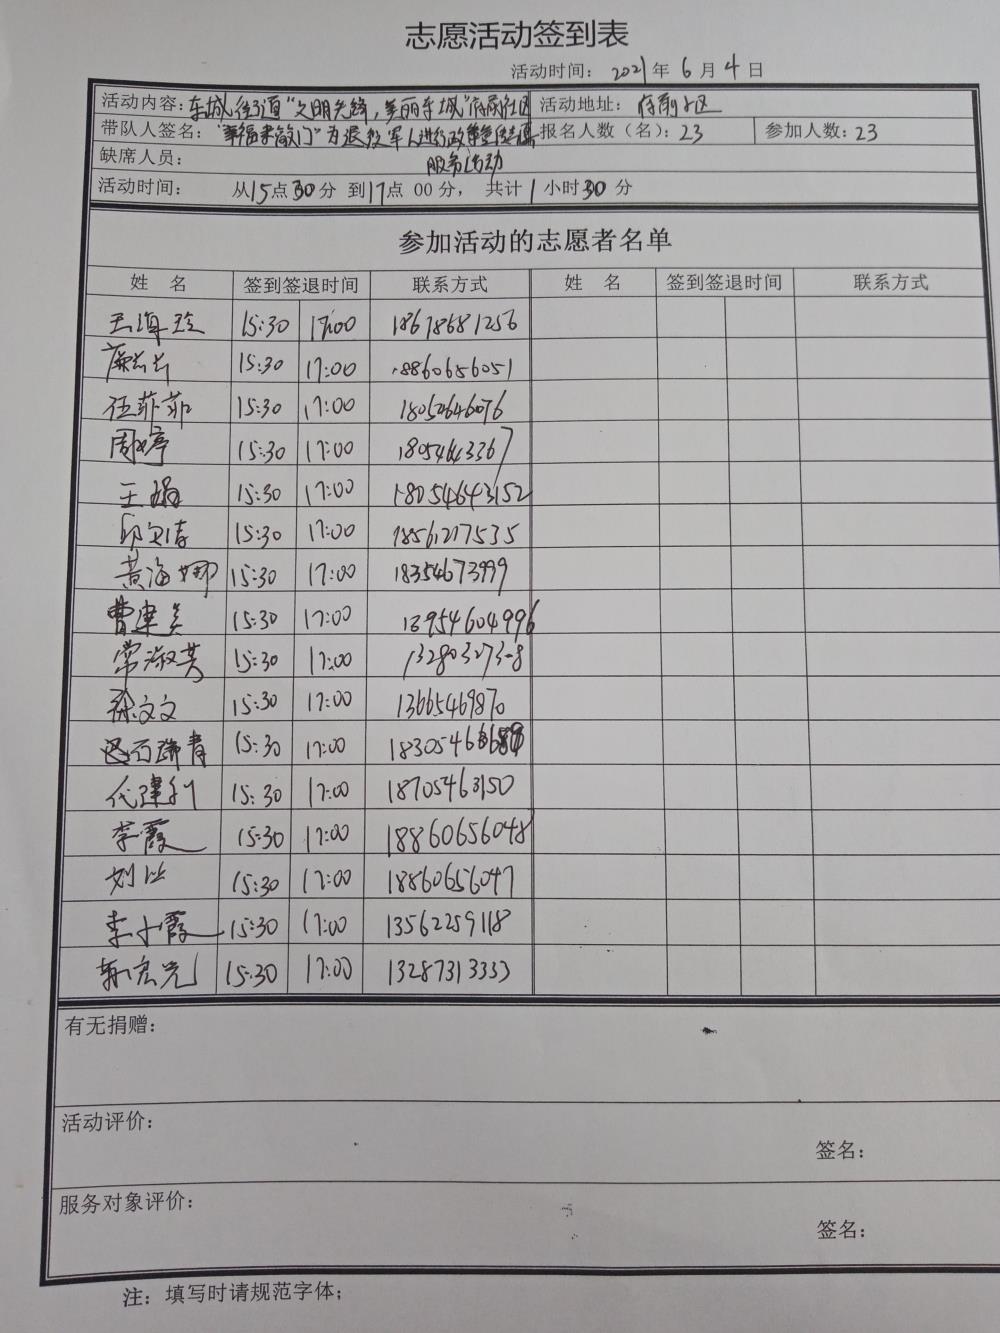 志愿活动签到表
活动时间： 2021年 6月 4日
活动内容：东城街道“文明先锋，美丽东城”府前社区 活动地址： 府前社区
带队人签名：“幸福来敲门”为退役军人进行政策宣传志愿 报名人数（名）：23 参加人数：23
缺席人员： 服务活动
活动时间： 从15点30分 到17点 00分， 共计1小时30分
参加活动的志愿者名单
姓 名 签到签退时间 联系方式 姓 名 签到签退时间 联系方式
15:30 17:00 18678681256
15:30 17:00 18860656051
任菲菲 15:30 17:00 18054646076
周婷 15:30 17:00
王娟 15:30 17:00 18054643152
15:30 17:00 18561217535
黄海娜 15:30 17:00 18354673999
曹建美 15:30 17:00 13954604996
常淑芳 15:30 17:00
徐文文 15:30 17:00 13665469870
15:30 17:00
代建利 15:30 17:00 18705463150
李霞 15:30 17:00 18860656048
15:30 17:00 18860656047
李小霞 15:30 17:00 13562259118
15:30 17:00 13287313333
有无捐赠：
活动评价：
签名：
服务对象评价：
签名：
注：填写时请规范字体；